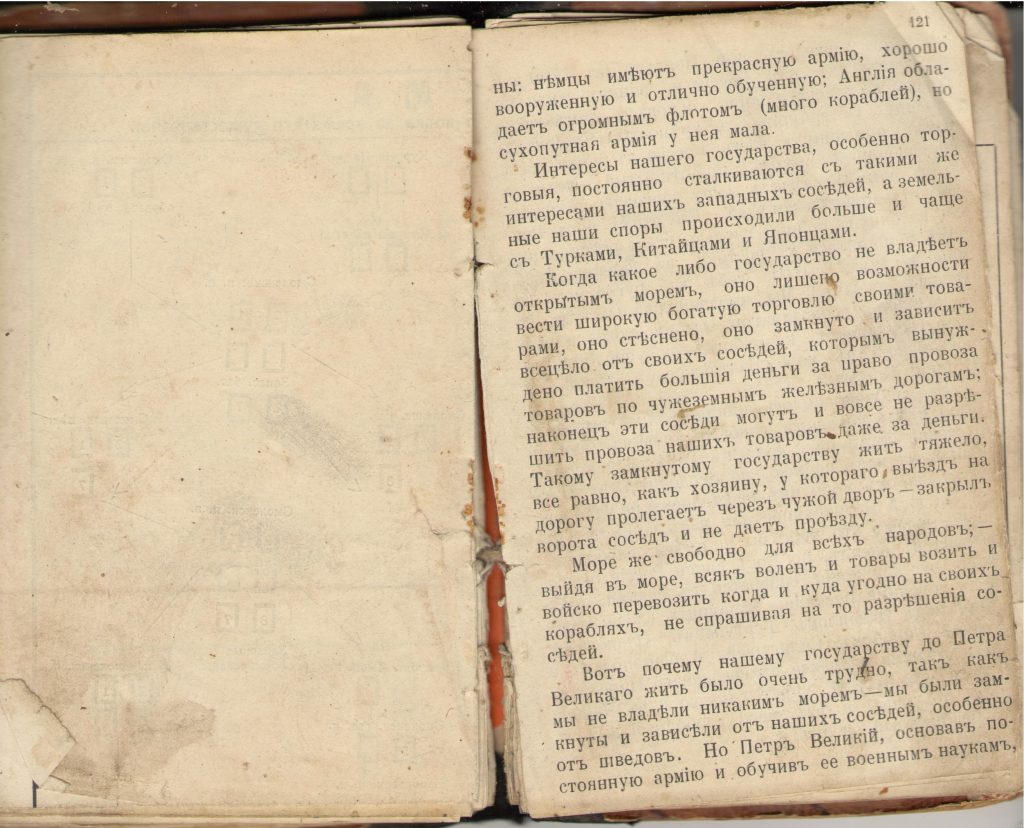 121
ны: нѣмцы имѣютъ прекрасную армію, хорошо
вооруженную и отлично обученную; Англія обла-
даетъ огромнымъ флотомъ (много кораблей), но
сухопутная армія у нея мала.
Интересы нашего государства, особенно тор-
говыя, постоянно сталкиваются съ такими же
интересами нашихъ западныхъ сосѣдей, а земель-
ные наши споры происходили больше и чаще
съ Турками, Китайцами и Японцами.
Когда какое либо государство не владѣетъ
открытымъ моремъ, оно лишено возможности
вести широкую богатую торговлю своими това-
рами, оно стѣснено, оно замкнуто и зависитъ
всецѣло отъ своихъ сосѣдей, которымъ вынуж-
дено платить большія деньги за право провоза
товаровъ по чужеземнымъ желѣзнымъ дорогамъ;
наконецъ эти сосѣди могутъ и вовсе не разрѣ-
шить провоза нашихъ товаровъ даже за деньги.
Такому замкнутому государству жить тяжело,
все равно, какъ хозяину, у котораго выѣздъ на
дорогу пролегаетъ черезъ чужой дворъ — закрылъ
ворота сосѣдъ и не даетъ проѣзду.
Море же свободно для всѣхъ народовъ; —
выйдя въ море, всякъ воленъ и товары возить и
войско перевозить когда и куда угодно на своихъ
корабляхъ, не спрашивая на то разрѣшенія со-
сѣдей.
Вотъ почему нашему государству до Петра
Великаго жить было очень трудно, такъ какъ
мы не владѣли никакимъ моремъ — мы были зам-
кнуты и зависѣли отъ нашихъ сосѣдей, особенно
отъ шведовъ. Но Петръ Великій, основавъ по-
стоянную армію и обучивъ ее военнымъ наукамъ,